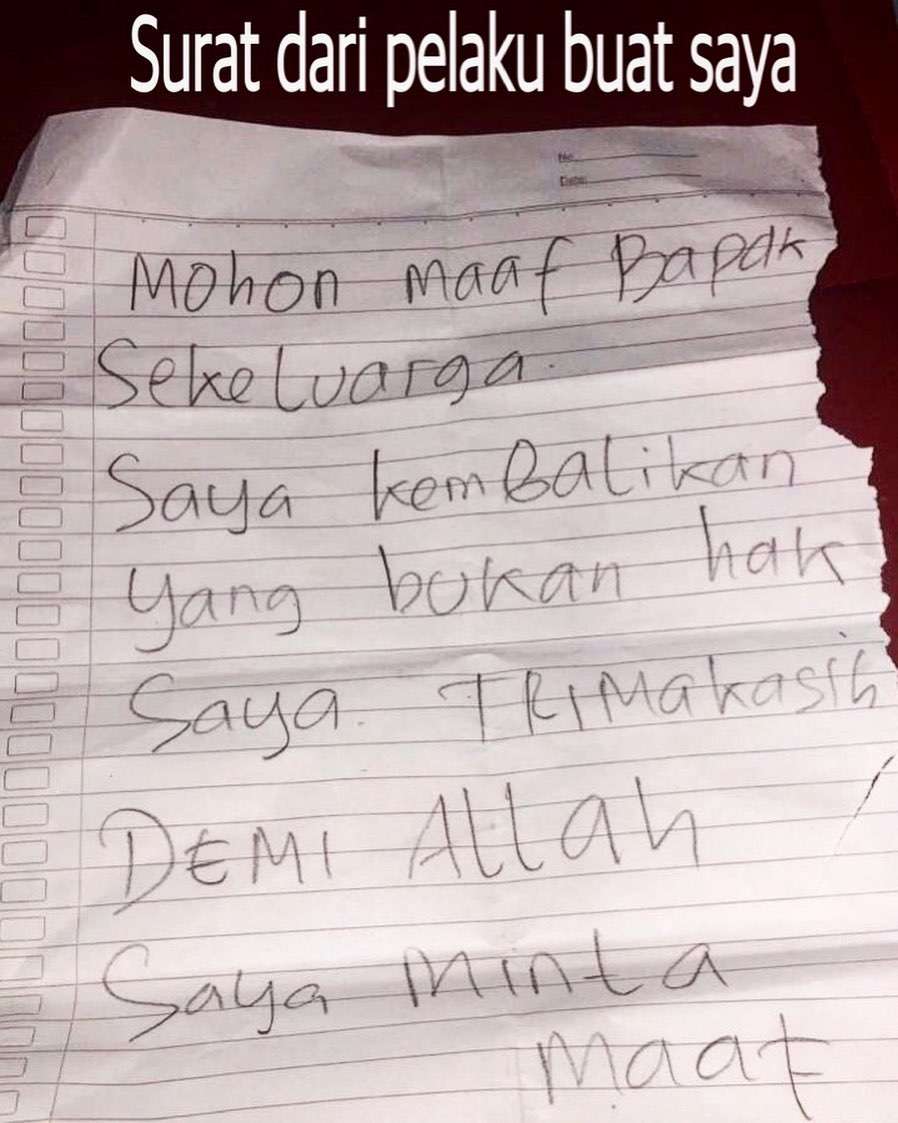 Surat dari pelaku buat saya
No.
Date:
Mohon maaf Bapak
Sekeluarga.
Saya kemBalikan
yang bukan hak
Saya. TRIMakasih
DEMI Allah
Saya minta
maaf